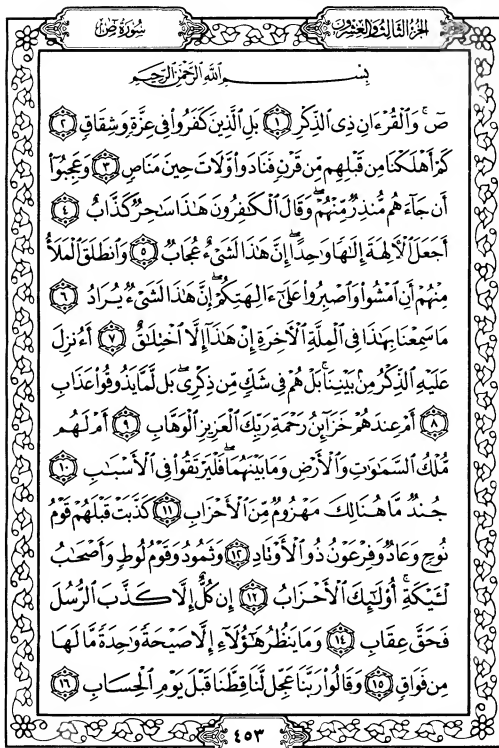 سُورَةُ صٓ
الجُزْءُ الثَّالِثُ وَالعِشْرُونَ
بِسْمِ اللَّهِ الرَّحْمَٰنِ الرَّحِيمِ
صٓ ۚ وَالْقُرْءَانِ ذِي الذِّكْرِ ۝١ بَلِ الَّذِينَ كَفَرُوا فِي عِزَّةٍ وَشِقَاقٍ ۝٢
كَمْ أَهْلَكْنَا مِن قَبْلِهِم مِّن قَرْنٍ فَنَادَوا وَّلَاتَ حِينَ مَنَاصٍ ۝٣ وَعَجِبُوٓا
أَن جَآءَهُم مُّنذِرٌ مِّنْهُمْ ۖ وَقَالَ الْكَٰفِرُونَ هَٰذَا سَٰحِرٌ كَذَّابٌ ۝٤
أَجَعَلَ الْءَالِهَةَ إِلَٰهًا وَٰحِدًا ۖ إِنَّ هَٰذَا لَشَيْءٌ عُجَابٌ ۝٥ وَانطَلَقَ الْمَلَأُ
مِنْهُمْ أَنِ امْشُوا وَاصْبِرُوا عَلَىٰٓ ءَالِهَتِكُمْ ۖ إِنَّ هَٰذَا لَشَيْءٌ يُرَادُ ۝٦
مَا سَمِعْنَا بِهَٰذَا فِي الْمِلَّةِ الْءَاخِرَةِ إِنْ هَٰذَآ إِلَّا اخْتِلَٰقٌ ۝٧ أَءُنزِلَ
عَلَيْهِ الذِّكْرُ مِنۢ بَيْنِنَا ۚ بَلْ هُمْ فِي شَكٍّ مِّن ذِكْرِي ۖ بَل لَّمَّا يَذُوقُوا عَذَابِ
۝٨ أَمْ عِندَهُمْ خَزَآئِنُ رَحْمَةِ رَبِّكَ الْعَزِيزِ الْوَهَّابِ ۝٩ أَمْ لَهُم
مُّلْكُ السَّمَٰوَٰتِ وَالْأَرْضِ وَمَا بَيْنَهُمَا ۖ فَلْيَرْتَقُوا فِي الْأَسْبَٰبِ ۝١٠
جُندٌ مَّا هُنَالِكَ مَهْزُومٌ مِّنَ الْأَحْزَابِ ۝١١ كَذَّبَتْ قَبْلَهُمْ قَوْمُ
نُوحٍ وَعَادٌ وَفِرْعَوْنُ ذُو الْأَوْتَادِ ۝١٢ وَثَمُودُ وَقَوْمُ لُوطٍ وَأَصْحَٰبُ
لْـَٔيْكَةِ ۚ أُولَٰٓئِكَ الْأَحْزَابُ ۝١٣ إِن كُلٌّ إِلَّا كَذَّبَ الرُّسُلَ
فَحَقَّ عِقَابِ ۝١٤ وَمَا يَنظُرُ هَٰٓؤُلَآءِ إِلَّا صَيْحَةً وَٰحِدَةً مَّا لَهَا
مِن فَوَاقٍ ۝١٥ وَقَالُوا رَبَّنَا عَجِّل لَّنَا قِطَّنَا قَبْلَ يَوْمِ الْحِسَابِ ۝١٦
٤٥٣